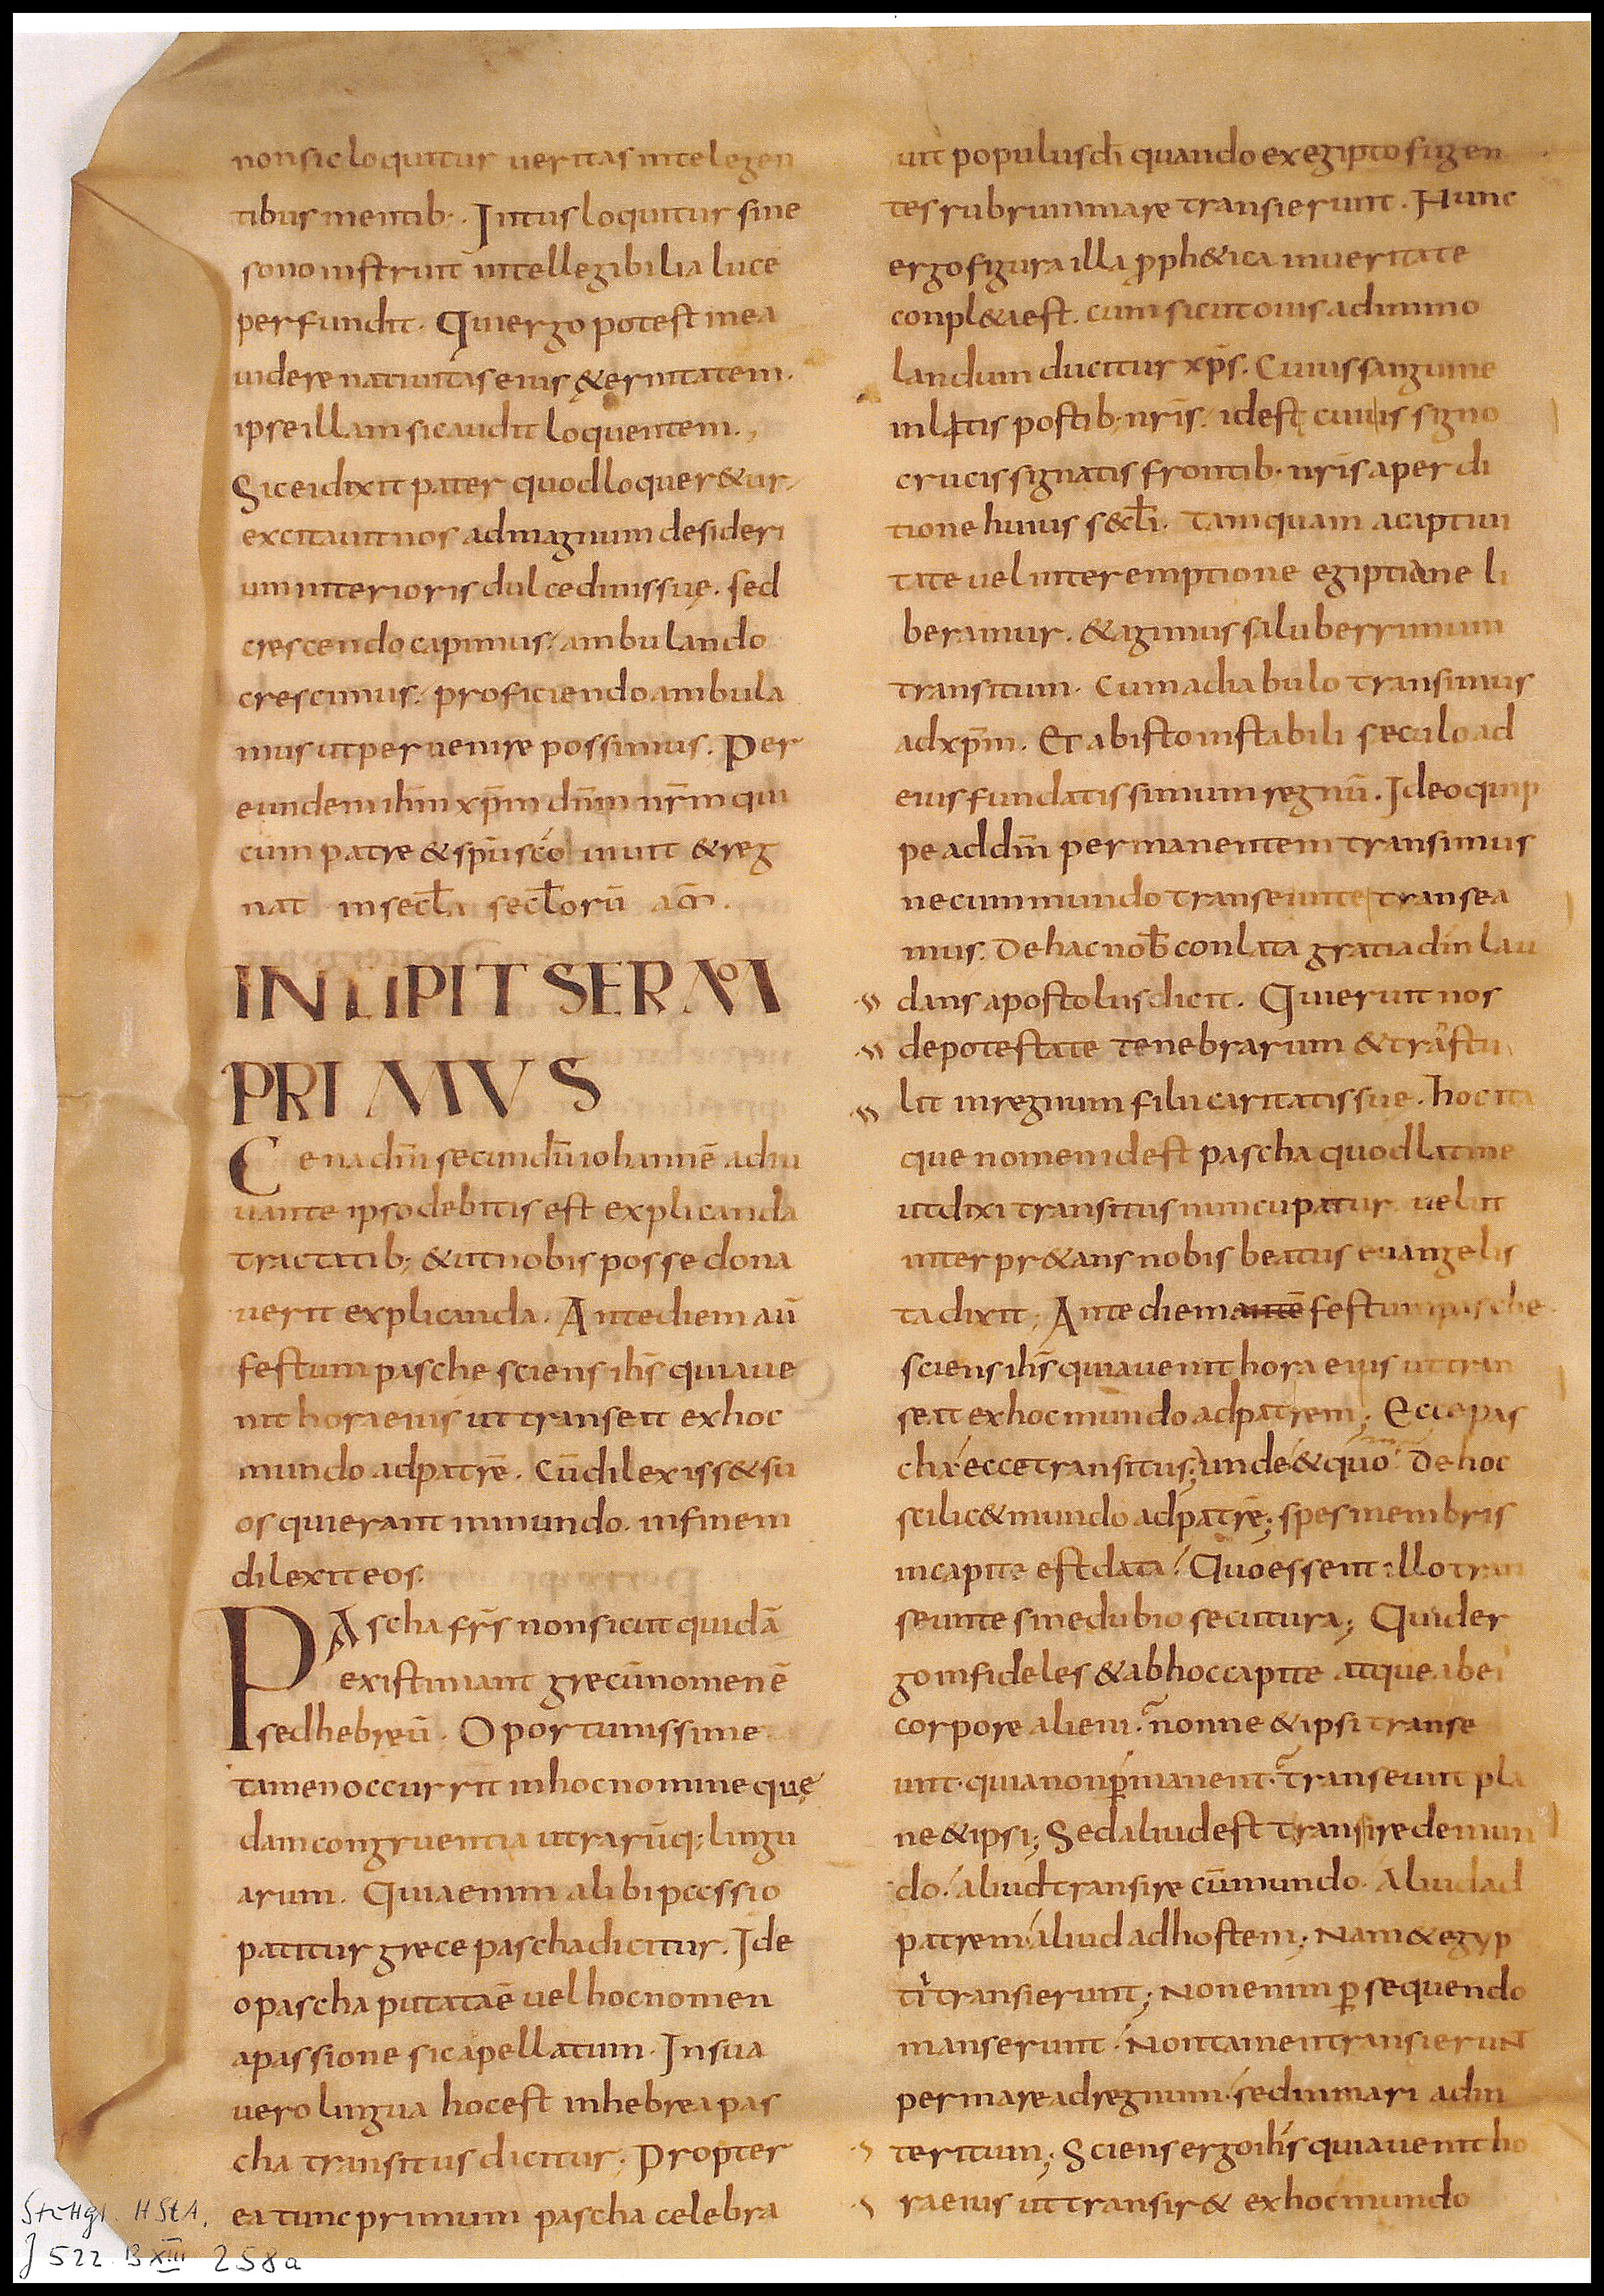 non sic loquitur veritas intelegen
tibus mentib; . Intus loquitur sine
sono instruit intellegibilia luce
perfundit . Qui ergo potest in ea
videre nativitatis eius &ernitatem .
ipse illam sic audit loquentem .,
Sic ei dixit pater quod loquer&ur /
excitavit nos ad magnum desideri
um interioris dulcedinis suę . sed
crescendo capimus / ambulando
crescimus / proficiendo ambula
mus ut pervenire possimus . Per
eundem ihm̄ xpm̄ dnm̄ nrm̄ qui
cum patre & spu sco vivit & reg
nat in secła secłorū am̄ .
INCIPIT SERMO
PRIMVS
Cena dni secundū iohannē adiu
vante ipso debitis est explicanda
tractatib; & ut nobis posse dona
verit explicanda . Ante diem aū
festum pasche sciens ihs̄ quia ve
nit hora eius ut transeat ex hoc
mundo ad patrē . Cū dilexiss& su
os qui erant in mundo . in finem
dilexit eos .
PAscha frs̄ non sicut quidā
existimant grecū nomen ē
sed hebreū . Oportunissime
tamen occurrit in hoc nomine quę
dam congruentia utrarūq; lingu
arum . Quia enim alibi passio
patitur grece pascha dicitur . Ide
o pascha putata ē vel hoc nomen
a passione sic apellatum . In sua
vero lingua hoc est in hebrea pas
cha transitus dicitur ; Propter
ea tunc primum pascha celebra
vit populus di quando ex egipto fugen
tes rubrum mare transierunt . Hunc
ergo figura illa pph&ica in veritate
conpl&a est . cum sicut ovis ad immo
landum ducitur xps̄ . Cuius sanguine
inlitis postib; nris̄ . id est cuius signo
crucis signatis frontib; nris a perdi
tione huius s&łi . tamquam a captivi
tate vel interemptione egiptiane li
beramur . & agimus saluberrimum
transitum . Cum a diabulo transimus
ad xpm̄ . Et ab isto instabili seculo ad
eius fundatissimum regnū . Ideo quip
pe ad dm̄ permanentem transimus
ne cum mundo transeunte transea
mus . De hac nob̄ conlata gratia dm̄ lau
dans apostolus dicit . Qui eruit nos
de potestate tenebrarum & transtu
lit in regnum filii caritatis sue . hoc ita
que nomen id est pascha quod latine
ut dixi transitus nuncupatur velut
interpr&ans nobis beatus evangelis
ta dixit ; Ante diem antē festum pasche
sciens ihs̄ quia venit hora eius ut tran
seat ex hoc mundo ad patrem ; Ecce pas
cha / ecce transitus ; unde / & quo / De hoc
scilic& mundo ad patrē ; spes membris
in capite est data / Quo essent illo tran
seunte sine dubio secutura ; Quid er
go infideles & ab hoc capite atque ab ei
corpore alieni . nonne & ipsi transe
unt . quia non pmanent . Transeunt pla
ne & ipsi ; Sed aliud est transire de mun
do / aliud transire cū mundo . Aliud ad
patrem / aliud ad hostem ; Nam & egyp
tii transierunt ; Non enim psequendo
manserunt / Non tamen transierunt
per mare ad regnum / sed in mari ad in
teritum ; Sciens ergo ihs̄ quia venit ho
ra eius ut transir& ex hoc mundo
Stuttg. HStA,
J 522 B XIII 258a